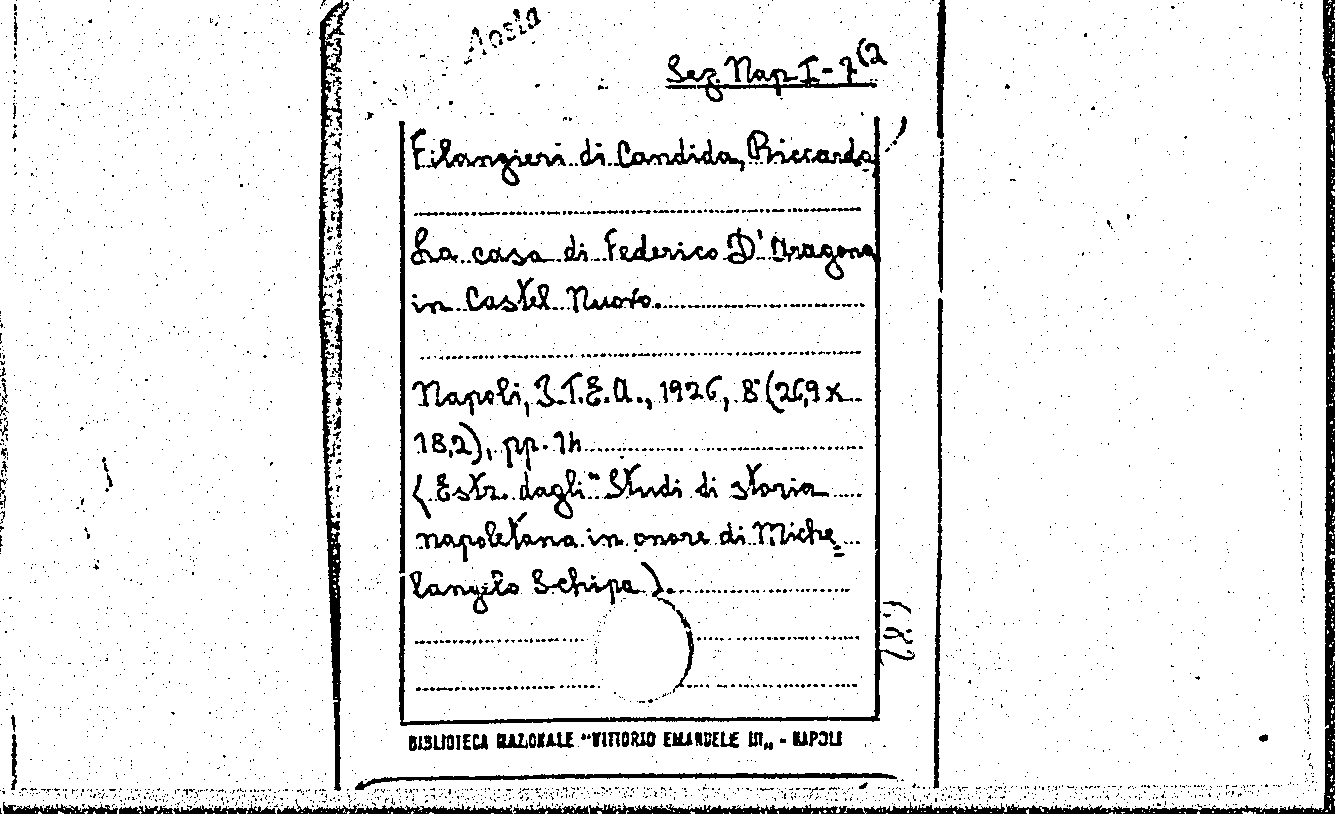 Aosta
Sez. Nap. I - 7(2
Filangieri di Candida, Riccardo
La casa di Federico D'Aragona
in Castel Nuovo.
Napoli, I.T.E.A., 1926, 8° (26,9 x
18,2), pp. 14
(Estr. dagli "Studi di storia
napoletana in onore di Miche=
langelo Schipa).
BIBLIOTECA NAZIONALE "VITTORIO EMANUELE III„ - NAPOLI